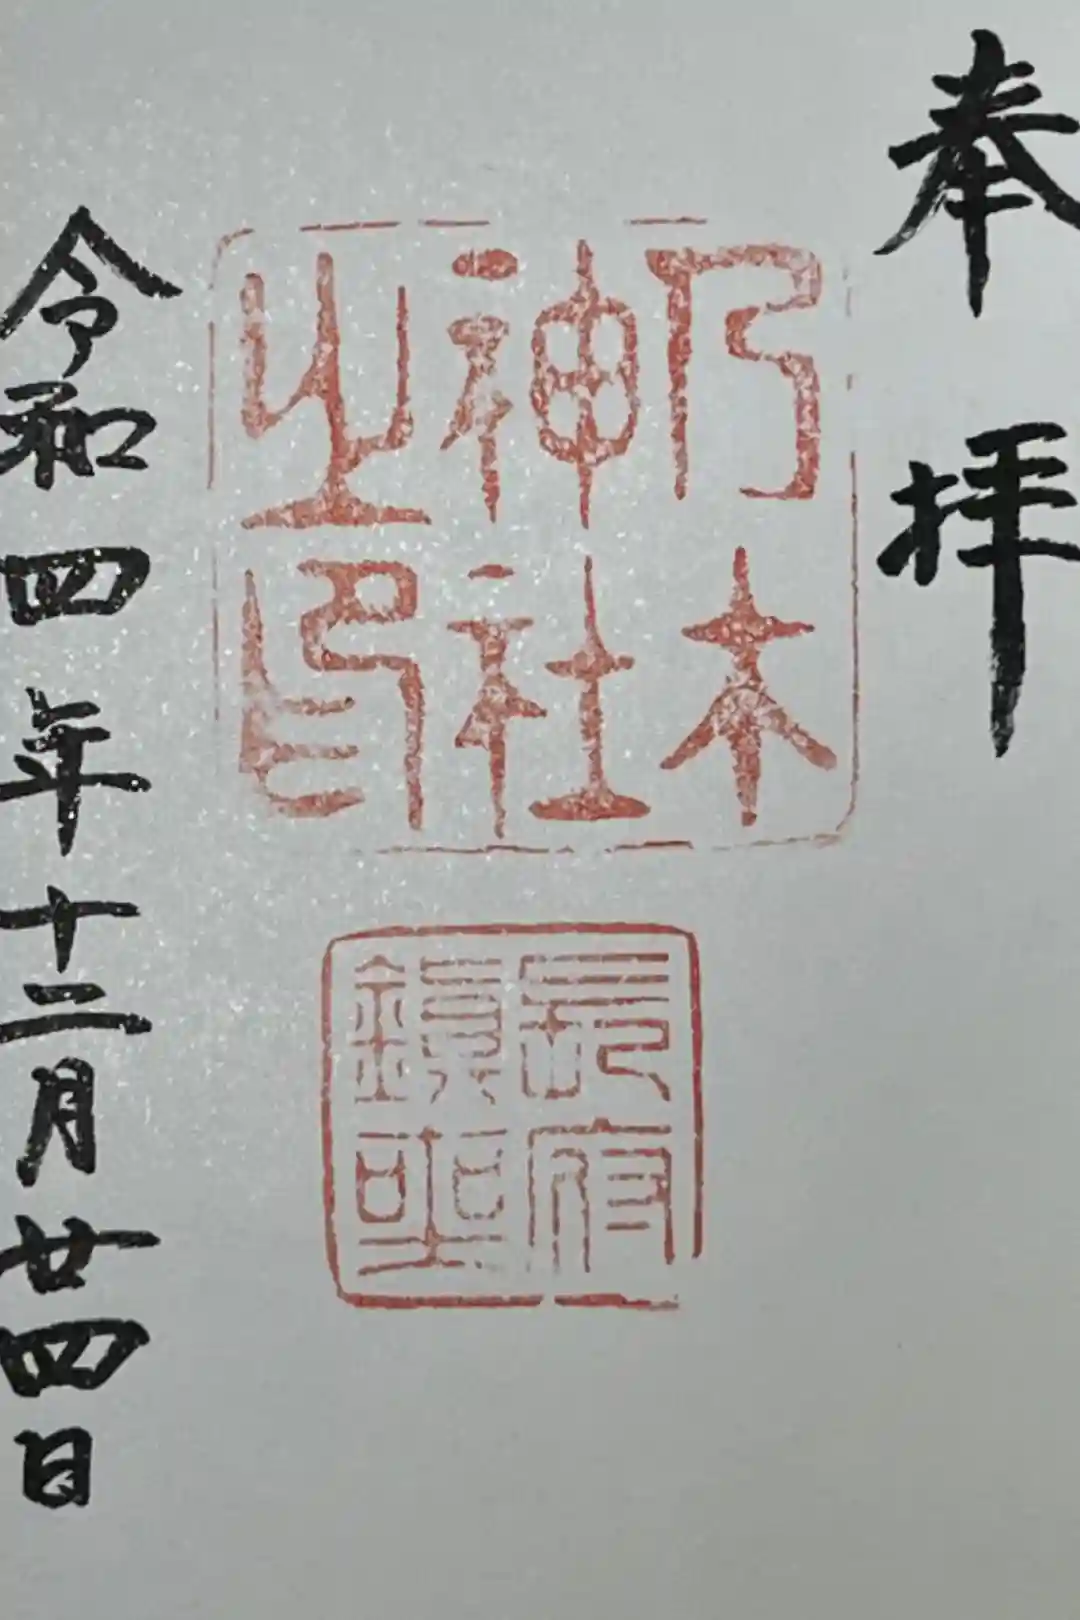 奉拝
乃木
神社
之印
長府
鎮座
令和四年十二月廿四日